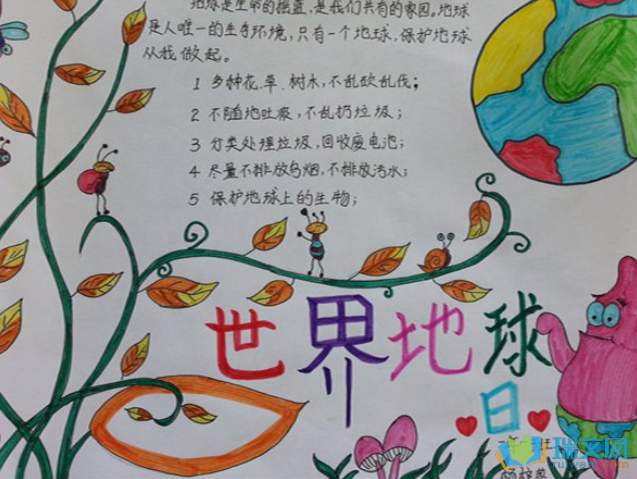 地球是生命的摇蓝，是我们共有的家园。地球
是人唯一的生存环境，只有一个地球，保护地球
从我做起。
1 多种花、草、树木，不乱砍乱伐；
2 不随地吐痰，不乱扔垃圾；
3 分类处理垃圾，回收废电池；
4 尽量不排放乌烟，不排放污水；
5 保护地球上的生物；
世界地球
日
班
瑞文网
ruiwen.com